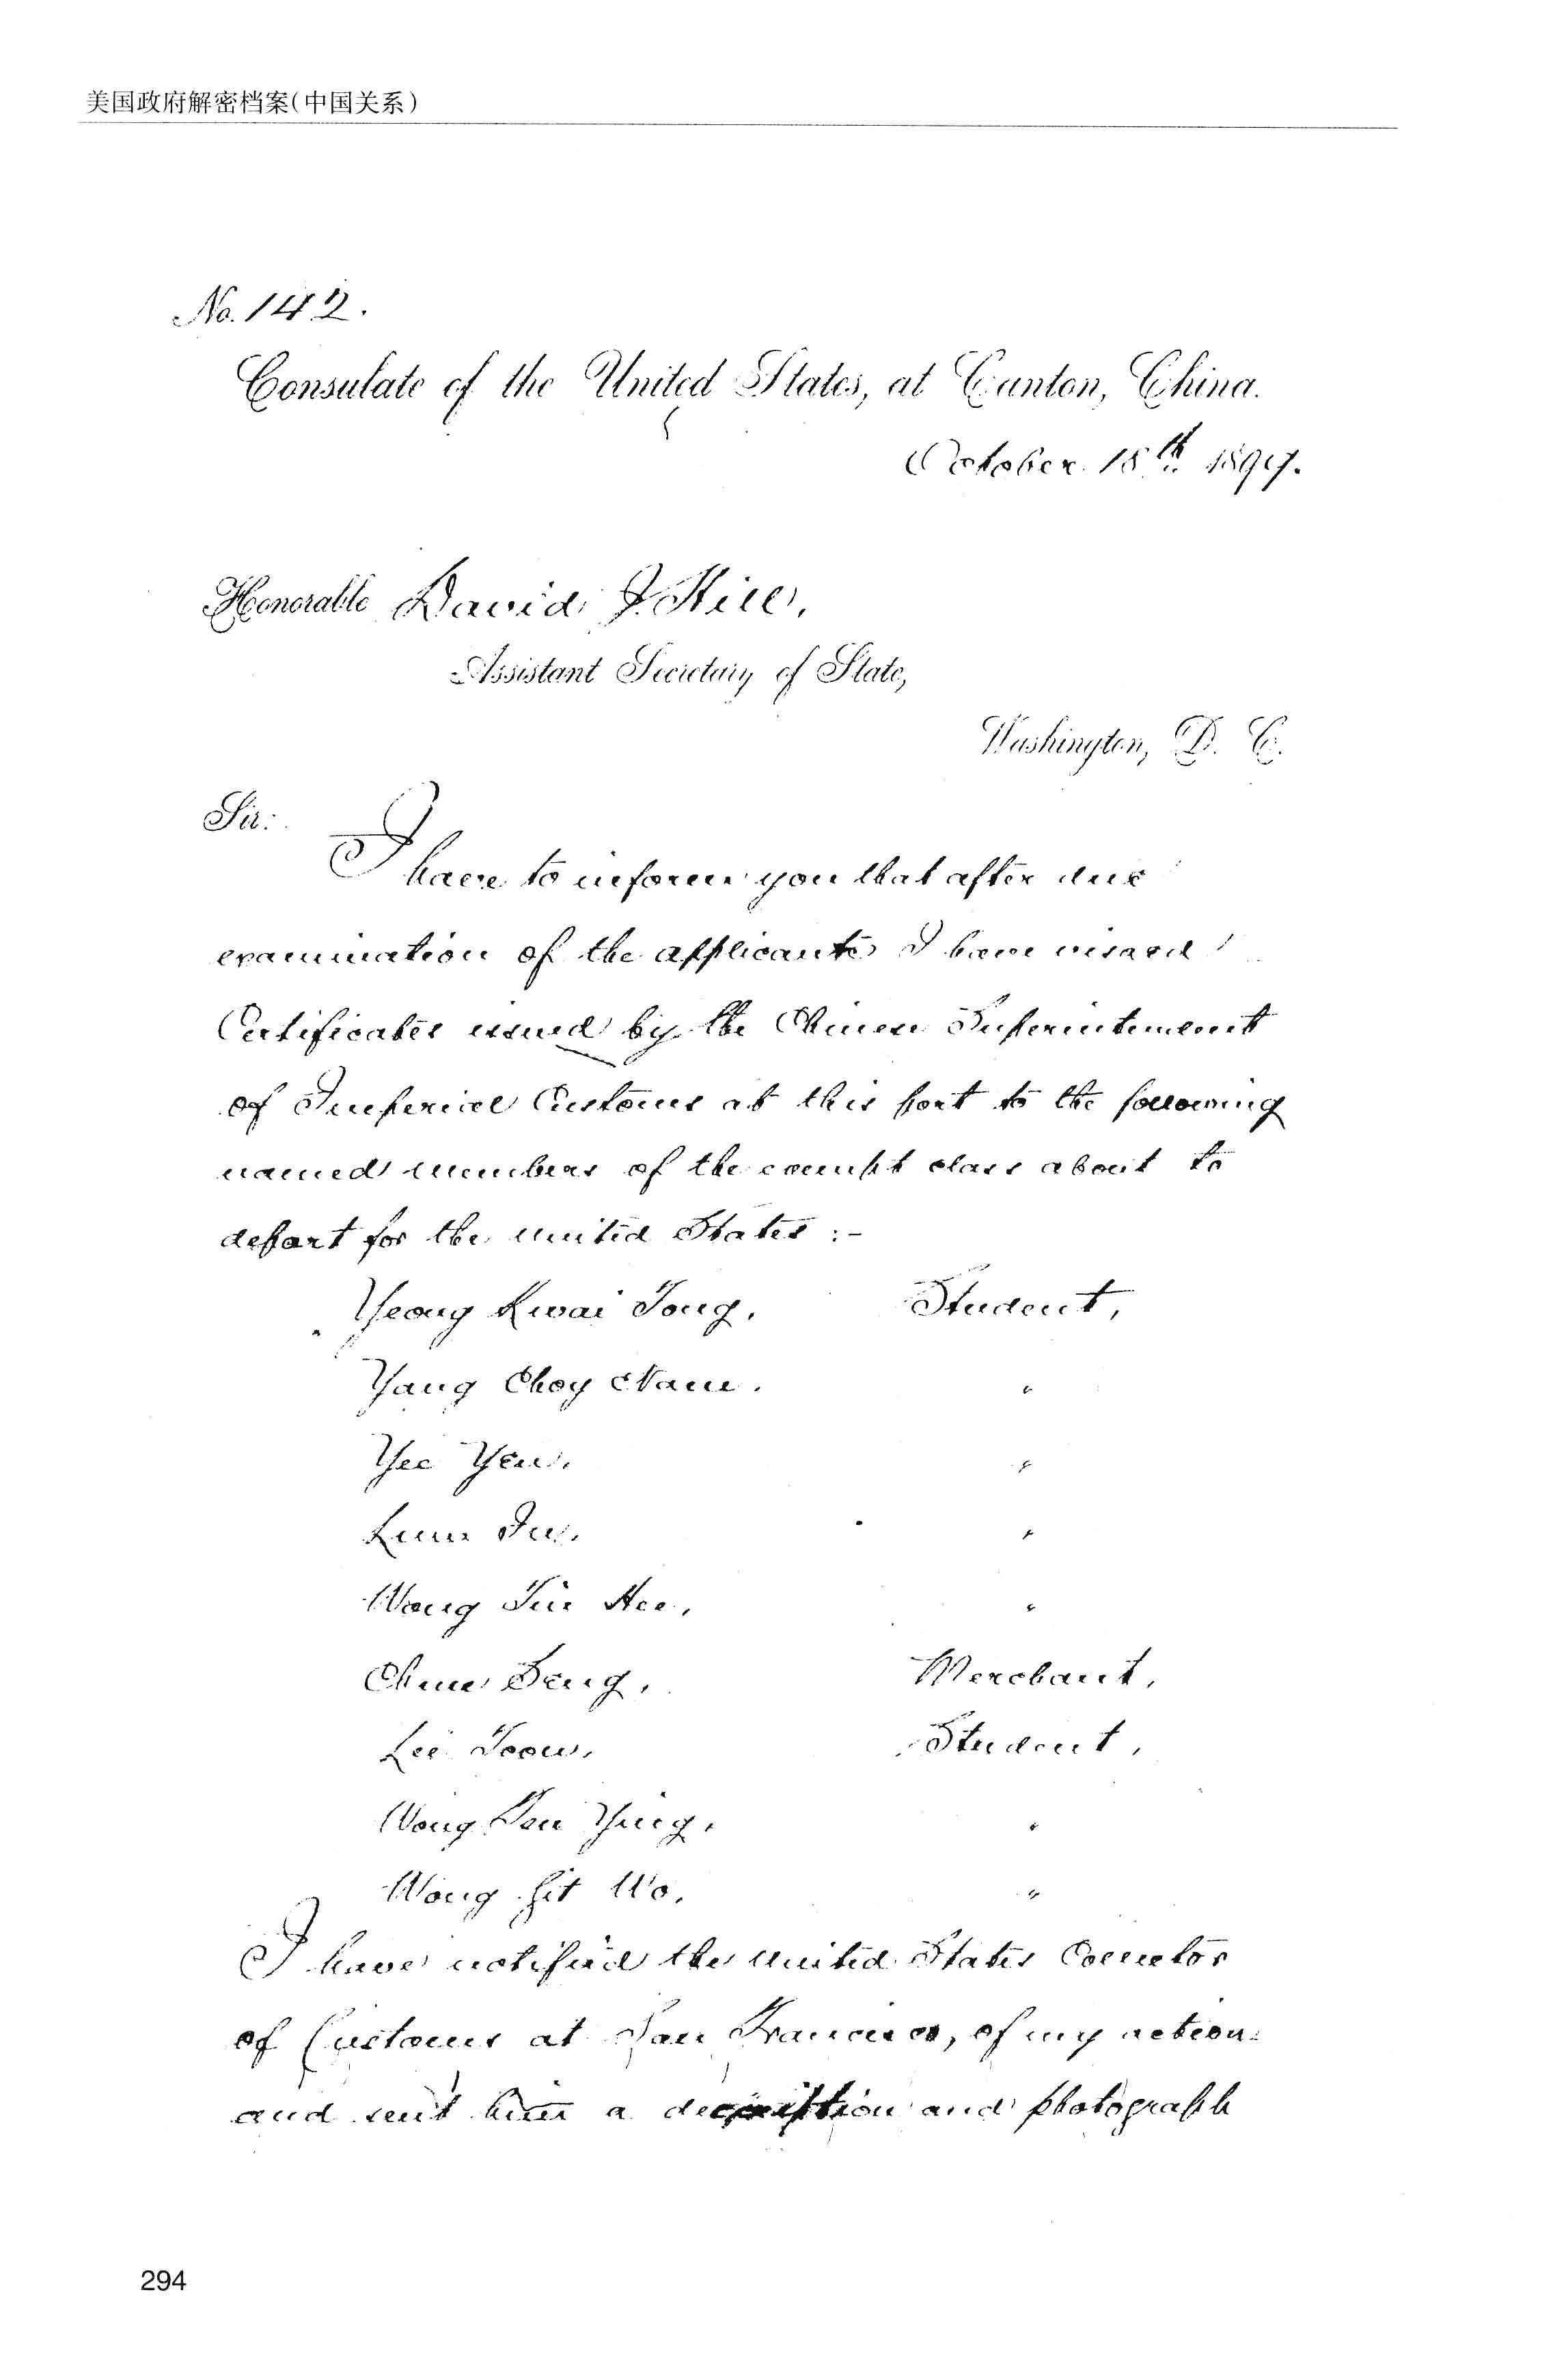 美国政府解密档案(中国关系)
No. 142.
Consulate of the United States, at Canton, China.
October 18th 1899.
Honorable David J. Hill,
Assistant Secretary of State,
Washington, D. C.
Sir:
I have to inform you that after due
examination of the applicants I have visaed
Certificates issued by the Chinese Superintendent
of Imperial Customs at this port to the following
named members of the exempt class about to
depart for the United States :-
Yeong Kwai Tong. Student,
Yang Choy Nam. "
Yee Yen. "
Lum Fu. "
Wong Tin Hee, "
Chun Seng, Merchant,
Lee Toow, Student,
Wong Sen Ying, "
Wong Git Wo. "
I have notified the United States Collector
of Customs at San Francisco, of my action
and sent him a description and photograph
294